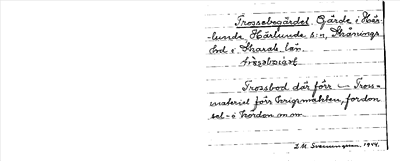 Trossebogärdet. Gärde i Här-
lunda, Härlunda s:n, Skånings
hd i Skarab. län.
Trossbod där förr — Tross-
materiel förr krigsmakten, fordon
sel- o hördon m m
I. M. Svenungsson. 1944.